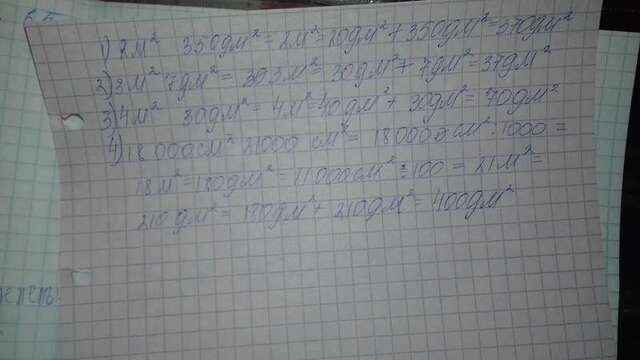 1) 2м² 350дм² = 2м² = 20дм² + 350дм² = 370дм²
2) 3м² 7дм² = 3м² = 30дм² + 7дм² = 37дм²
3) 4м² 30дм² = 4м² = 40дм² + 30дм² = 70дм²
4) 18 000см² 21000 см² = 18000 см² : 1000 =
18м² = 180дм² = 21000см² : 100 = 21м² =
210дм² = 180дм² + 210дм² = 400дм²